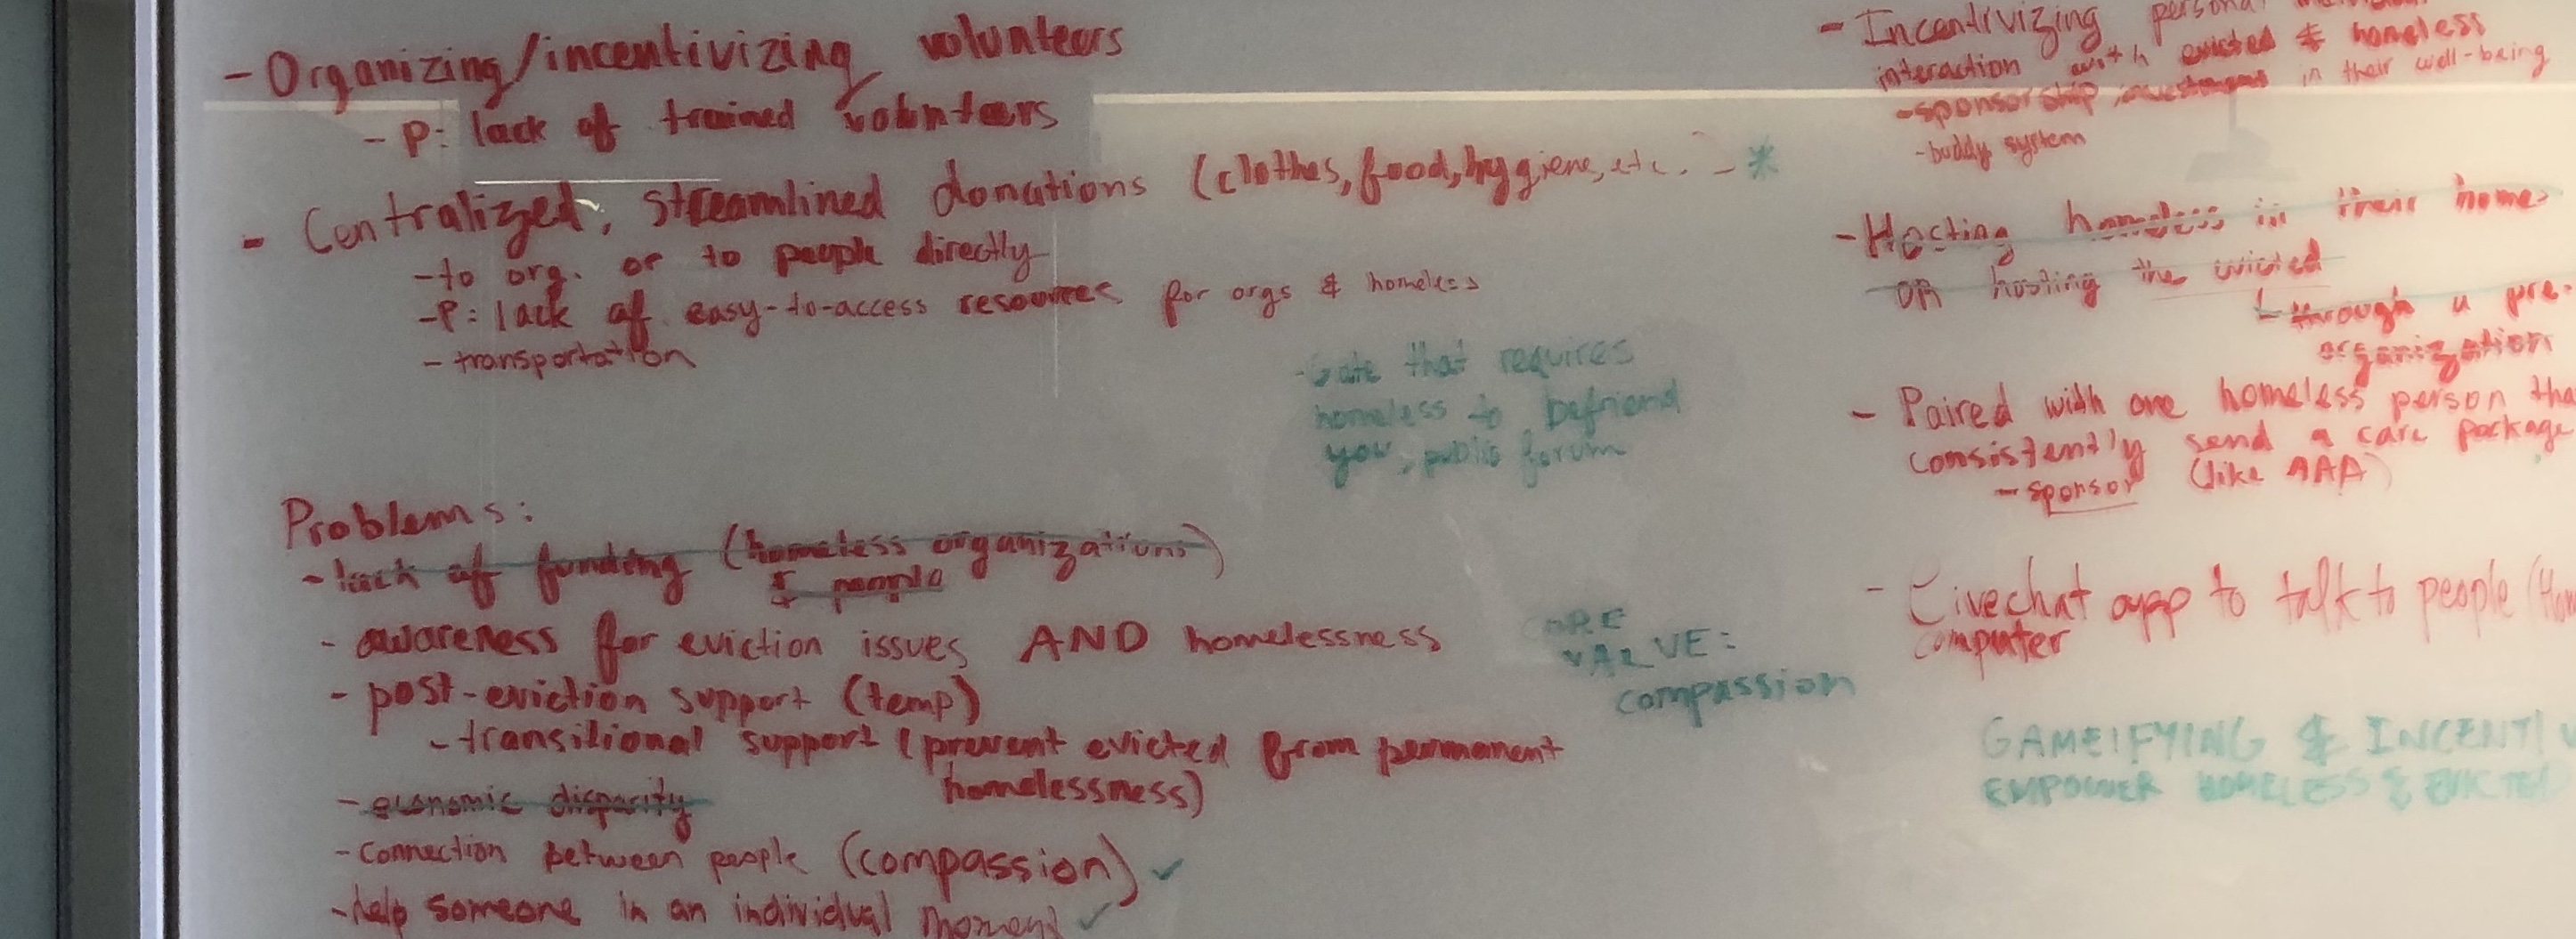 - Organizing/incentivizing volunteers
- P: lack of trained volunteers
- Centralized, streamlined donations (clothes, food, hygiene, etc. - *
- to org. or to people directly
- P: lack of easy-to-access resources for orgs & homeless
- transportation
- Gate that requires
homeless to befriend
you, public forum
Problems:
- lack of funding (homeless organizations)
& people
- awareness for eviction issues AND homelessness
- post-eviction support (temp)
- transitional support (prevent evicted from permanent
homelessness)
- economic disparity
- connection between people (compassion) ✓
- help someone in an individual moment ✓
VALVE:
compassion
- Incentivizing personal
interaction with evicted & homeless
- sponsorship, investment in their well-being
- buddy system
- Hosting homeless in their home
OR hosting the evicted
through a pre-
organization
- Paired with one homeless person tha
consistently send a care package
- sponsor (like AAA)
- Livechat app to talk to people
computer
GAMEIFYING & INCENTIV
EMPOWER HOMELESS & EVICTED